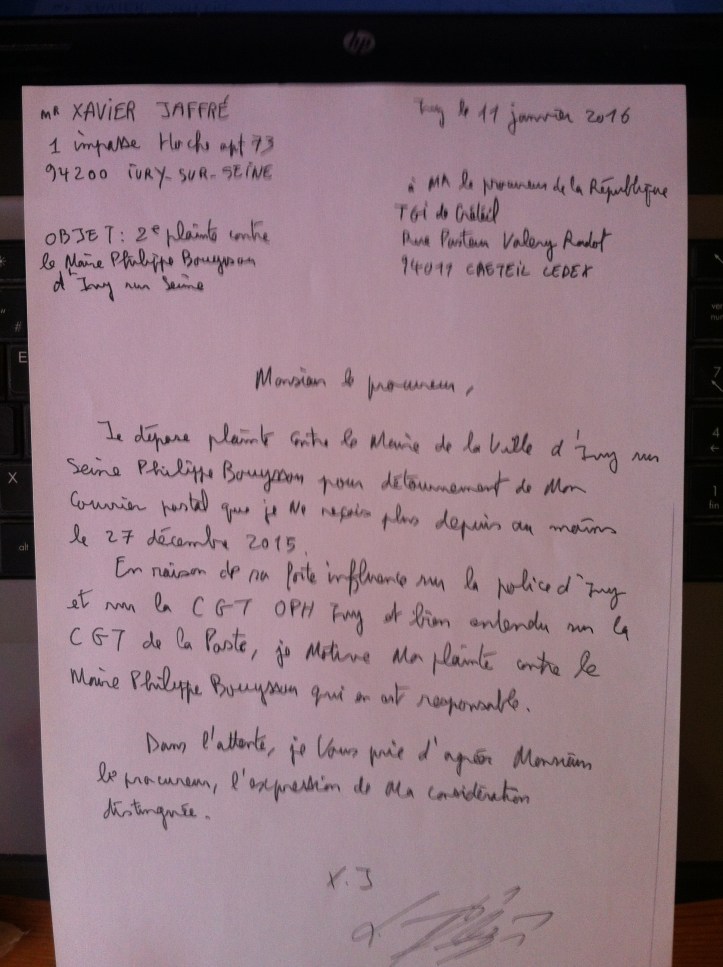 hp
MR XAVIER JAFFRÉ
1 impasse Hoche apt 73
94200 IVRY-SUR-SEINE
Ivry le 11 janvier 2016
à MR le procureur de la République
TGI de Créteil
Rue Pasteur Valery Radot
94011 CRETEIL CEDEX
OBJET: 2e plainte contre
le Maire Philippe Bouysson
d'Ivry sur Seine
Monsieur le procureur,
Je dépose plainte contre le Maire de la Ville d'Ivry sur
Seine Philippe Bouysson pour détournement de Mon
Courrier postal que je Ne reçois plus depuis au moins
le 27 décembre 2015.
En raison de sa forte influence sur la police d'Ivry
et sur la CGT OPH Ivry et bien entendu sur la
CGT de la Poste, je Motive Ma plainte contre le
Maire Philippe Bouysson qui en est responsable.
Dans l'attente, je Vous prie d'agréer Monsieur
le procureur, l'expression de Ma considération
distinguée.
X.J